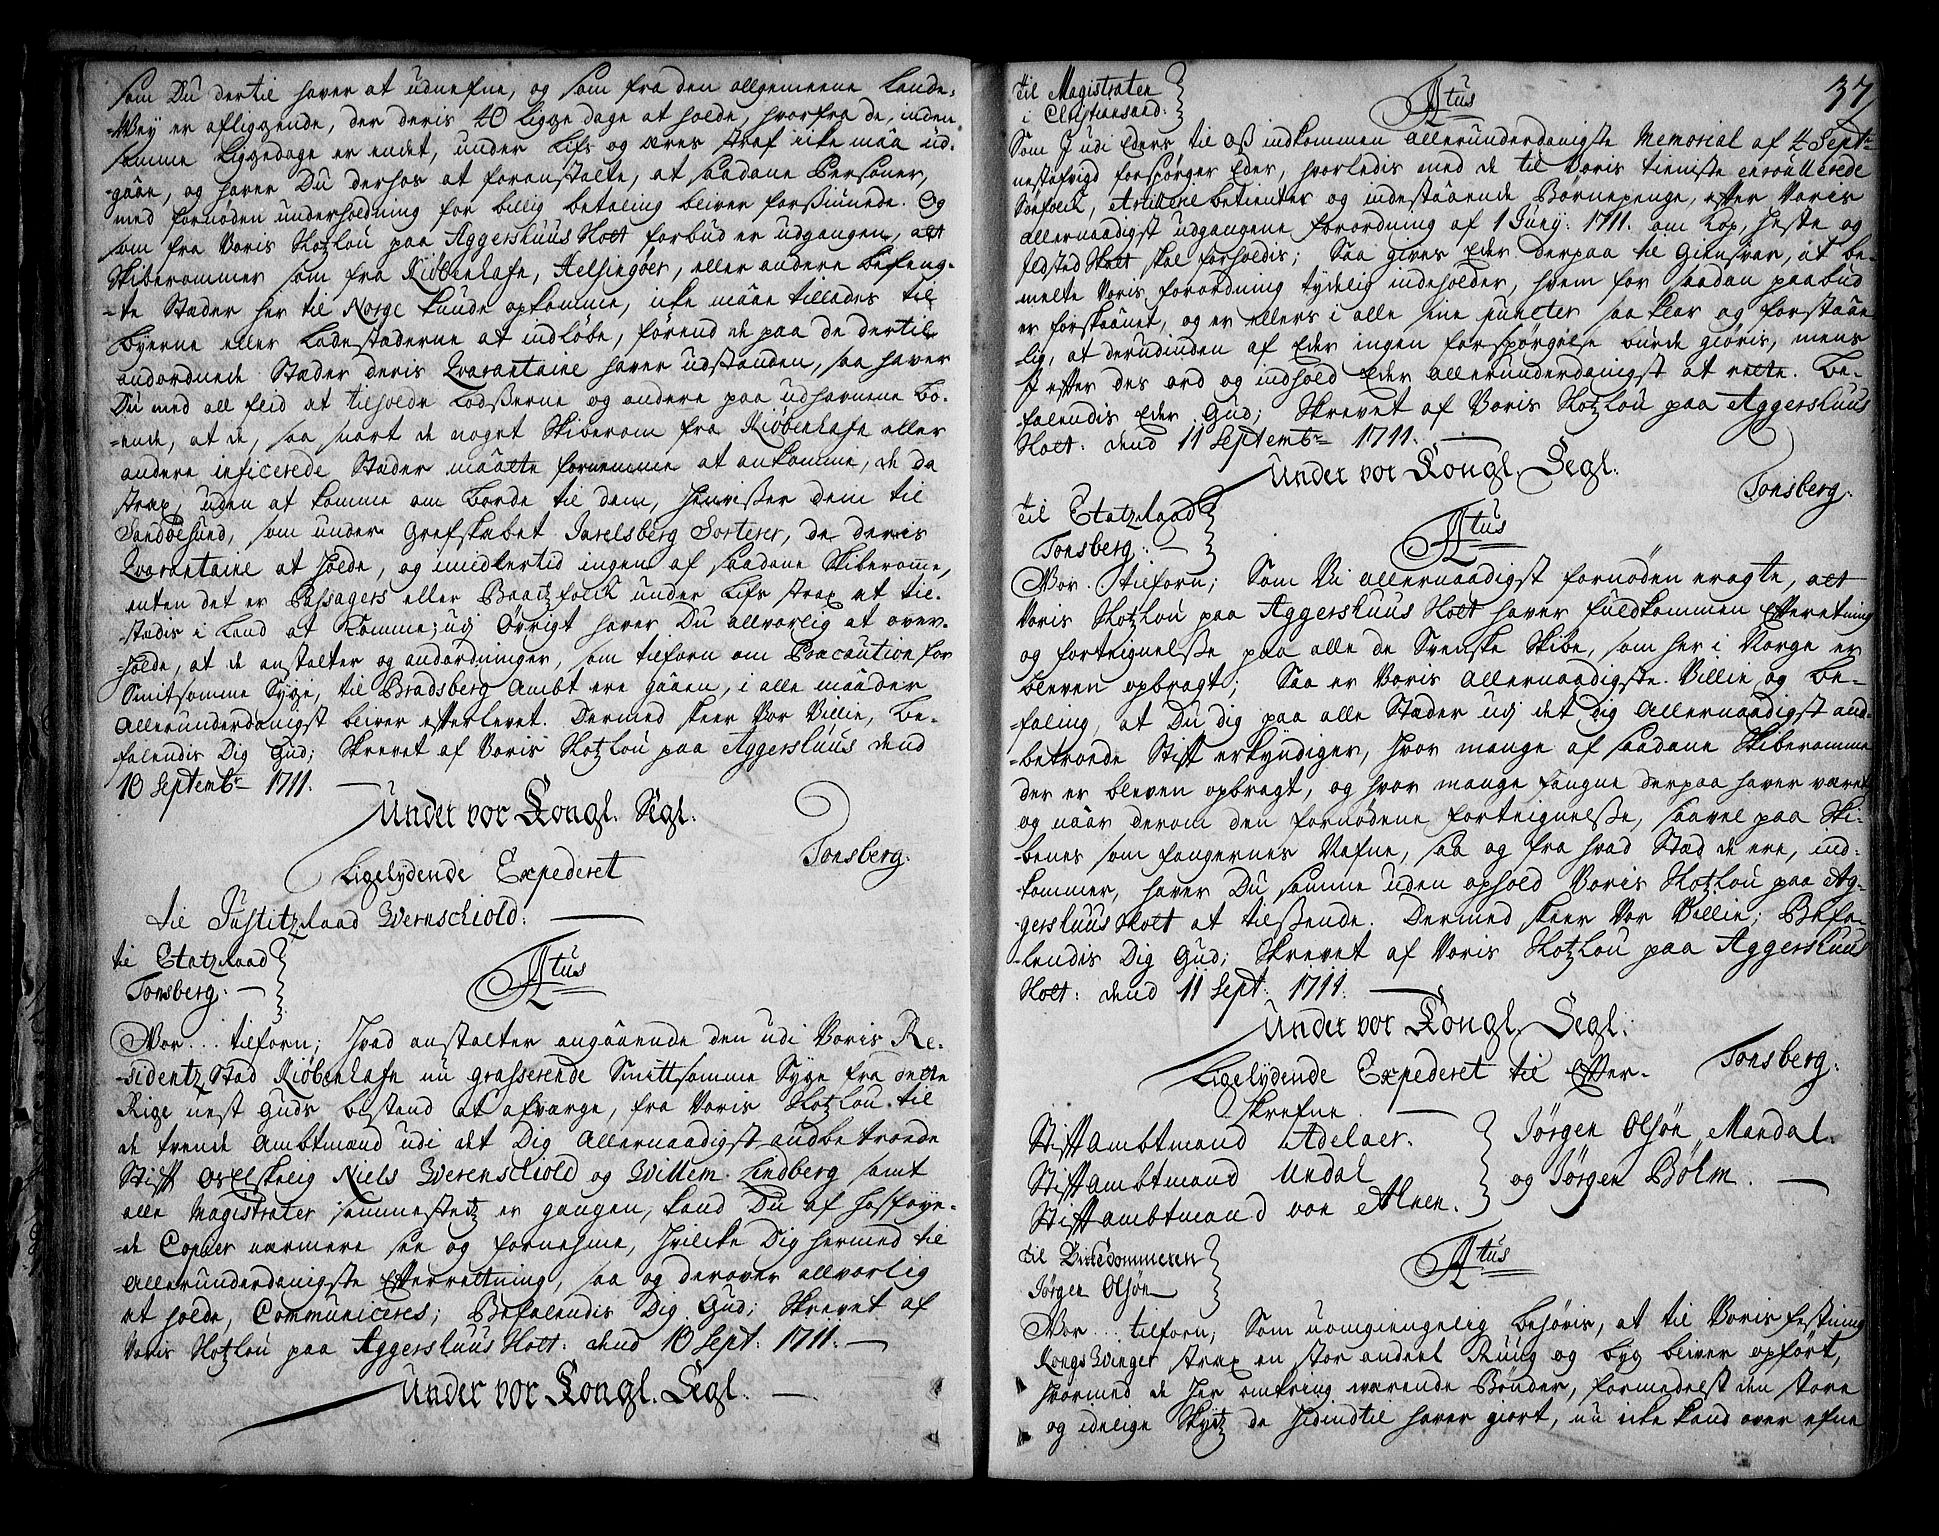 som Du dertil haver at udnefne, og som fra den allgemeene Lande-
-Vey er afliggende, der deris 40 ligge dage at holde, hvorfra de, inden
samme liggedage er endet, under Lifs og æres straf icke maa ud-
-gaae, og haver Du derhos at foranstalte, at saadane Personer,
med fornøden underholdning for billig betaling bliver forsiunede. Og
som fra Voris Slotzlou paa Aggershuus Slott forbud er udgangen, att
Skiberommer som fra Kiøbenhafn, Helsingøer, eller andere befeng-
-te Stæder her til Norge kunde opkomme, icke maae tillades til
Byerne eller Ladestæderne at indløbe, førend de paa de dertil
andordnede Stæder deris Qvarantaine haver udstanden, saa haver
Du med all flid at tilholde Lodsserne og andere paa udhavnene bo-
-ende, at de, saa snart de noget Skiberom fra Kiøbenhafn eller
andere inficerede Stæder maatte fornemme at ankomme, de da
strax, uden at komme om Borde til dem, Henvisser dem til
Sandøesund, som under Grefskabet Jarelsberg Sorterer, de deris
Qvarantaine at holde, og imidlertid ingen af saadane Skiberomme,
enten det er Passagers eller Baatzfolck under Lifs straf at til-
-stædis i Land at Komme; udj Øvrigt haver Du allvorlig at over-
-holde, at de anstalter og andordninger, som tilforn om Præcaution for
Smitsomme Syge, til Bradsberg Ambt ere gaaen, i alle maader
Allerunderdanigst bliver efterlevet. Dermed skeer Vor Villie, Be-
-falendis Dig Gud; Skrevet af Voris Slotzlou paa Aggershuus dend
10 Septembr 1711.
Under vor Kongl. Segl.
Tonsberg.
Ligelydende Expederet
til Justitzraad Wernschiold.
til Etatzraad
Tonsberg.
Atus
Vor... tilforn; Hvad anstalter angaaende den udi Voris Re-
-sidentz Stad Kiøbenhafn nu grasserende Smittsomme Syge fra dette
Rige nest Guds bestand at afværge, fra Voris Slotzlou til
de trende Ambtmænd udi det Dig Allernaadigst andbetroede
Stift Os Elskelig Niels Werenschiold og Willem Lindberg samt
alle Magistrater sammestetz er gangen, kand Du af hosføye-
-de Copier nærmere see og fornehme, Hvilcke Dig hermed til
Allerunderdanigste Efterrettning, saa og derover allvorlig
at holde, Communiceres; Befalendis Dig Gud; Skrevet af
Voris Slotzlou paa Aggershuus Slott. dend 10 Sept. 1711.
Under vor Kongl. Segl.
37
til Magistraten
i Christiansand.
Atus
Som I udi Eders til Oss indkommen allerunderdanigste Memorial af 4 Septr
nestafvigd forspørger Eder, hvorledis med de til Voris tieniste enroullerede
Søefolck, Artillerie betienter og indestaaende Børnepenge, efter Voris
allernaadigst udgangene forordning af 1 Junij. 1711. om Kop, Heste og
Ildsted Skatt skal forholdis; Saa gives Eder derpaa til Giensvar, at be-
melte Voris forordning tydelig indeholder, hvem for saadan paabud
er forskaanet, og er ellers i alle sine puncter saa klar og forstaae-
-lig, at derudinden af Eder ingen forspørgelse burde giøris, mens
I efter des ord og indhold Eder allerunderdanigst at rette. Be-
-falendis Eder Gud; Skrevet af Voris Slotzlou paa Aggershuus
Slott. dend 11 Septembr 1711.
Under vor Kongl. Segl.
Tonsberg.
til Etatzraad
Tonsberg.
Atus
Vor. tilforn; Som Vi allernaadigst fornøden eragte, att
Voris Slotzlou paa Aggershuus Slott haver fuldkommen Efteretning
og forteignelse paa alle de Svenske Skibe, som her i Norge er
bleven opbragt; Saa er Voris Allernaadigste Villie og Be-
-faling, at Du dig paa alle Stæder udj det Dig Allernaadigst and-
-betroede Stift erkyndiger, hvor mange af saadane Skiberomme
der er bleven opbragt, og hvor mange fangne derpaa haver været
og naar derom den fornødene forteignelse, saavel paa Ski-
-benes som fangernes Nafne, saa og fra hvad Stæd de ere, ind-
-kommer, haver Du samme uden ophold Voris Slotzlou paa Ag-
gershuus Slott at tilsende. Dermed skeer Vor Villie; Befa-
-lendis Dig Gud; Skrevet af Voris Slotzlou paa Aggershuus
Slott. dend 11 Sept. 1711.
Under vor Kongl. Segl.
Tonsberg.
Ligelydende Expederet til Efter-
skrefne.
Stiftambtmand Adelaer.
Stiftambtmand Undal
Stiftambtmand von Ahnen.
Jørgen Olsøn Mandal.
og Jørgen Bøhm.
til Birkedommeren
Jørgen Olsøn
Atus
Vor... tilforn, Som uomgiengelig behøvis, at til Voris festning
Kongs Winger strax en stor andeel Rug og byg bliver opført,
hvormed de her omkring værende Bønder, formedelst den store
og idelige Skytz de hidindtil haver giort, nu icke kand over efne